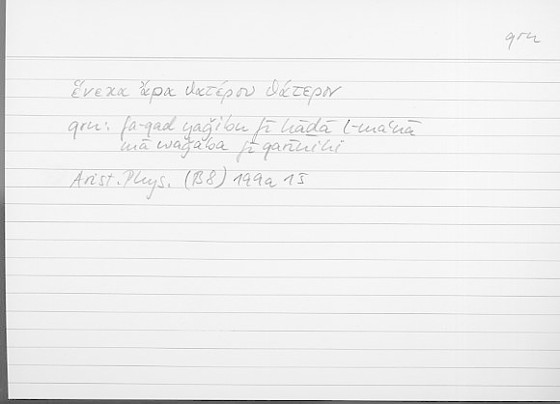 qrn
ἕνεκα ἄρα θατέρου θάτερον
qrn: fa-qad yaǧibu fī hāḏā l-maʿnā
mā waǧaba fī qarīnihi
Arist. Phys. (B8) 199a 15